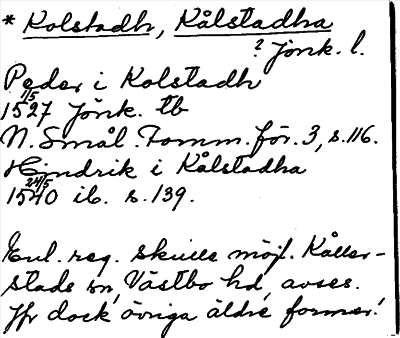 * Kolstadh, Kålstadha
? Jönk. l.
Peder i Kolstadh
11/5
1527 Jönk. tb
N. Smål. Fornm.för. 3, s. 116.
Hindrik i Kålstadha
24/5
1540 ib. s. 139.
Enl. reg. skulle möjl. Kåller-
stads sn, Västbo hd, avses.
Jfr dock övriga äldre former!